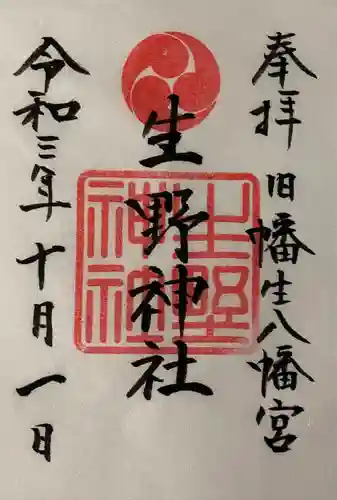 奉拝
旧幡生八幡宮
生野神社
生野神社
令和三年十月一日